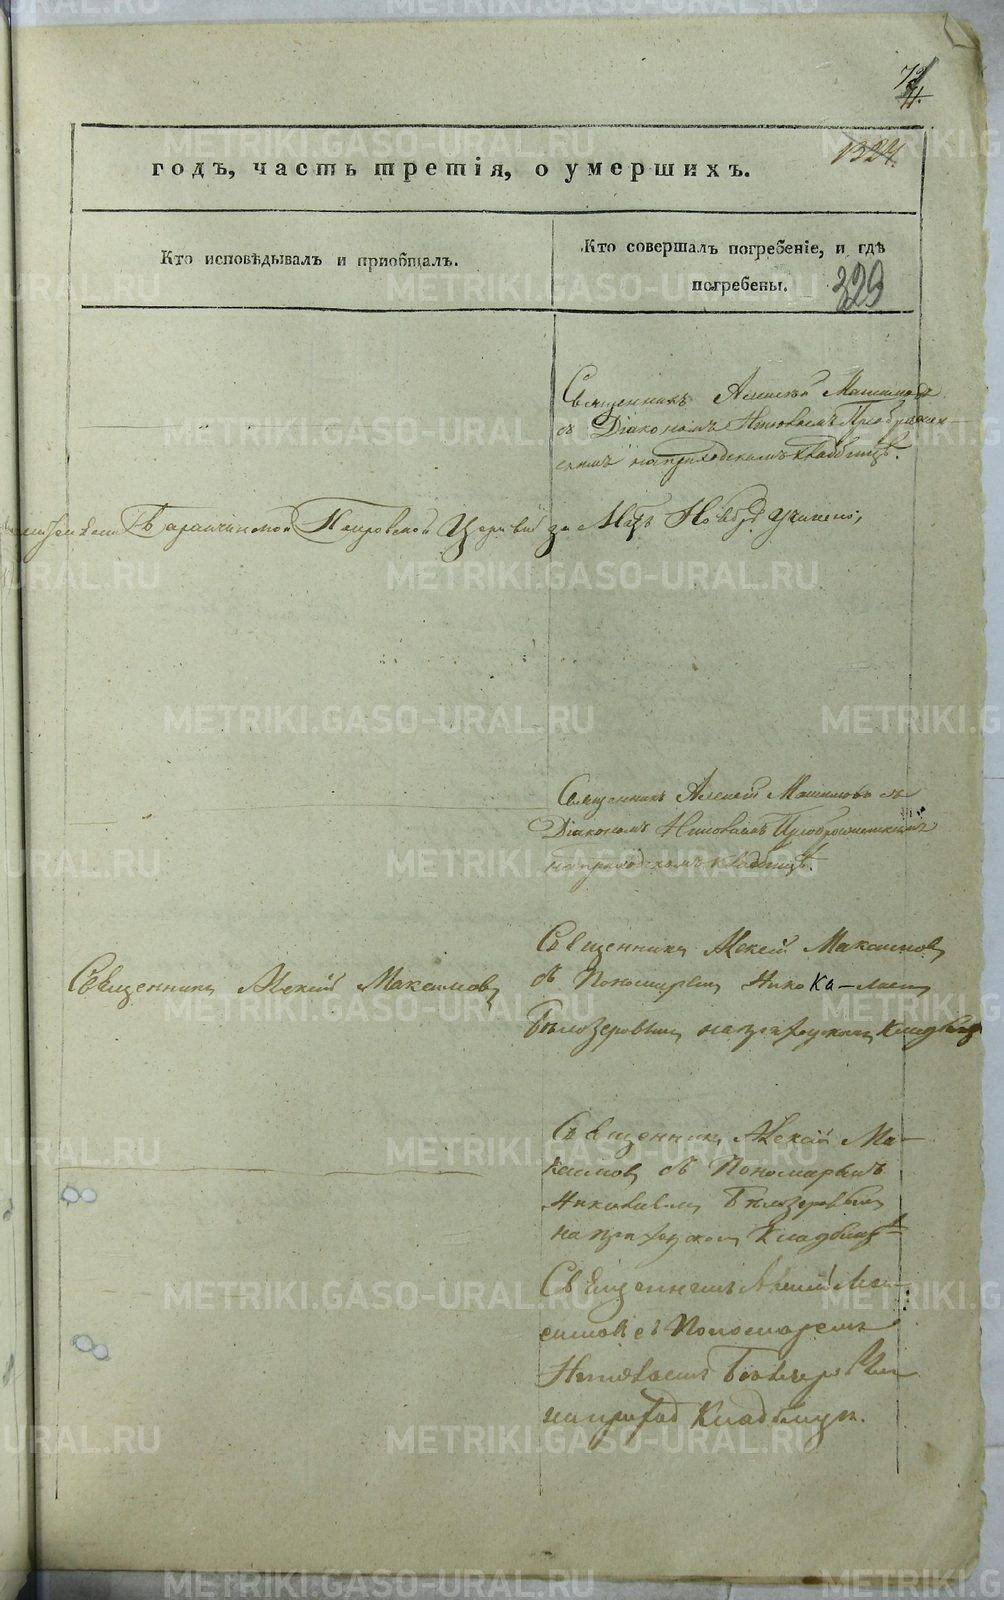 72
71.
1324.
годъ, часть третія, о умершихъ.
Кто исповѣдывалъ и пріобщалъ.
Кто совершалъ погребеніе, и гдѣ
погребены.
329
Священникъ Алексѣй Максимовъ
съ Діакономъ Николаемъ Преображен-
скимъ на приходскомъ кладбищѣ.
Баранчинской Петровской Церкви за Мцъ Ноябрь Учинено;
Священникъ Алексѣй Максимовъ съ
Діакономъ Николаемъ Преображенскимъ
на приходскомъ кладбищѣ.
Священникъ Алексій Максимовъ
Священникъ Алексій Максимовъ
съ Пономаремъ Нико ка-лаемъ
Бѣлозеровымъ на приходскомъ Кладбищѣ
Священникъ Алексій Ма-
ксимовъ съ Пономаремъ
Николаемъ Бѣлозеровымъ
на приходскомъ Кладбищѣ
Священникъ Алексій Мак-
симовъ съ Пономаремъ
Николаемъ Бѣлозеровымъ
на приход Кладбищѣ.
METRIKI.GASO-URAL.RU